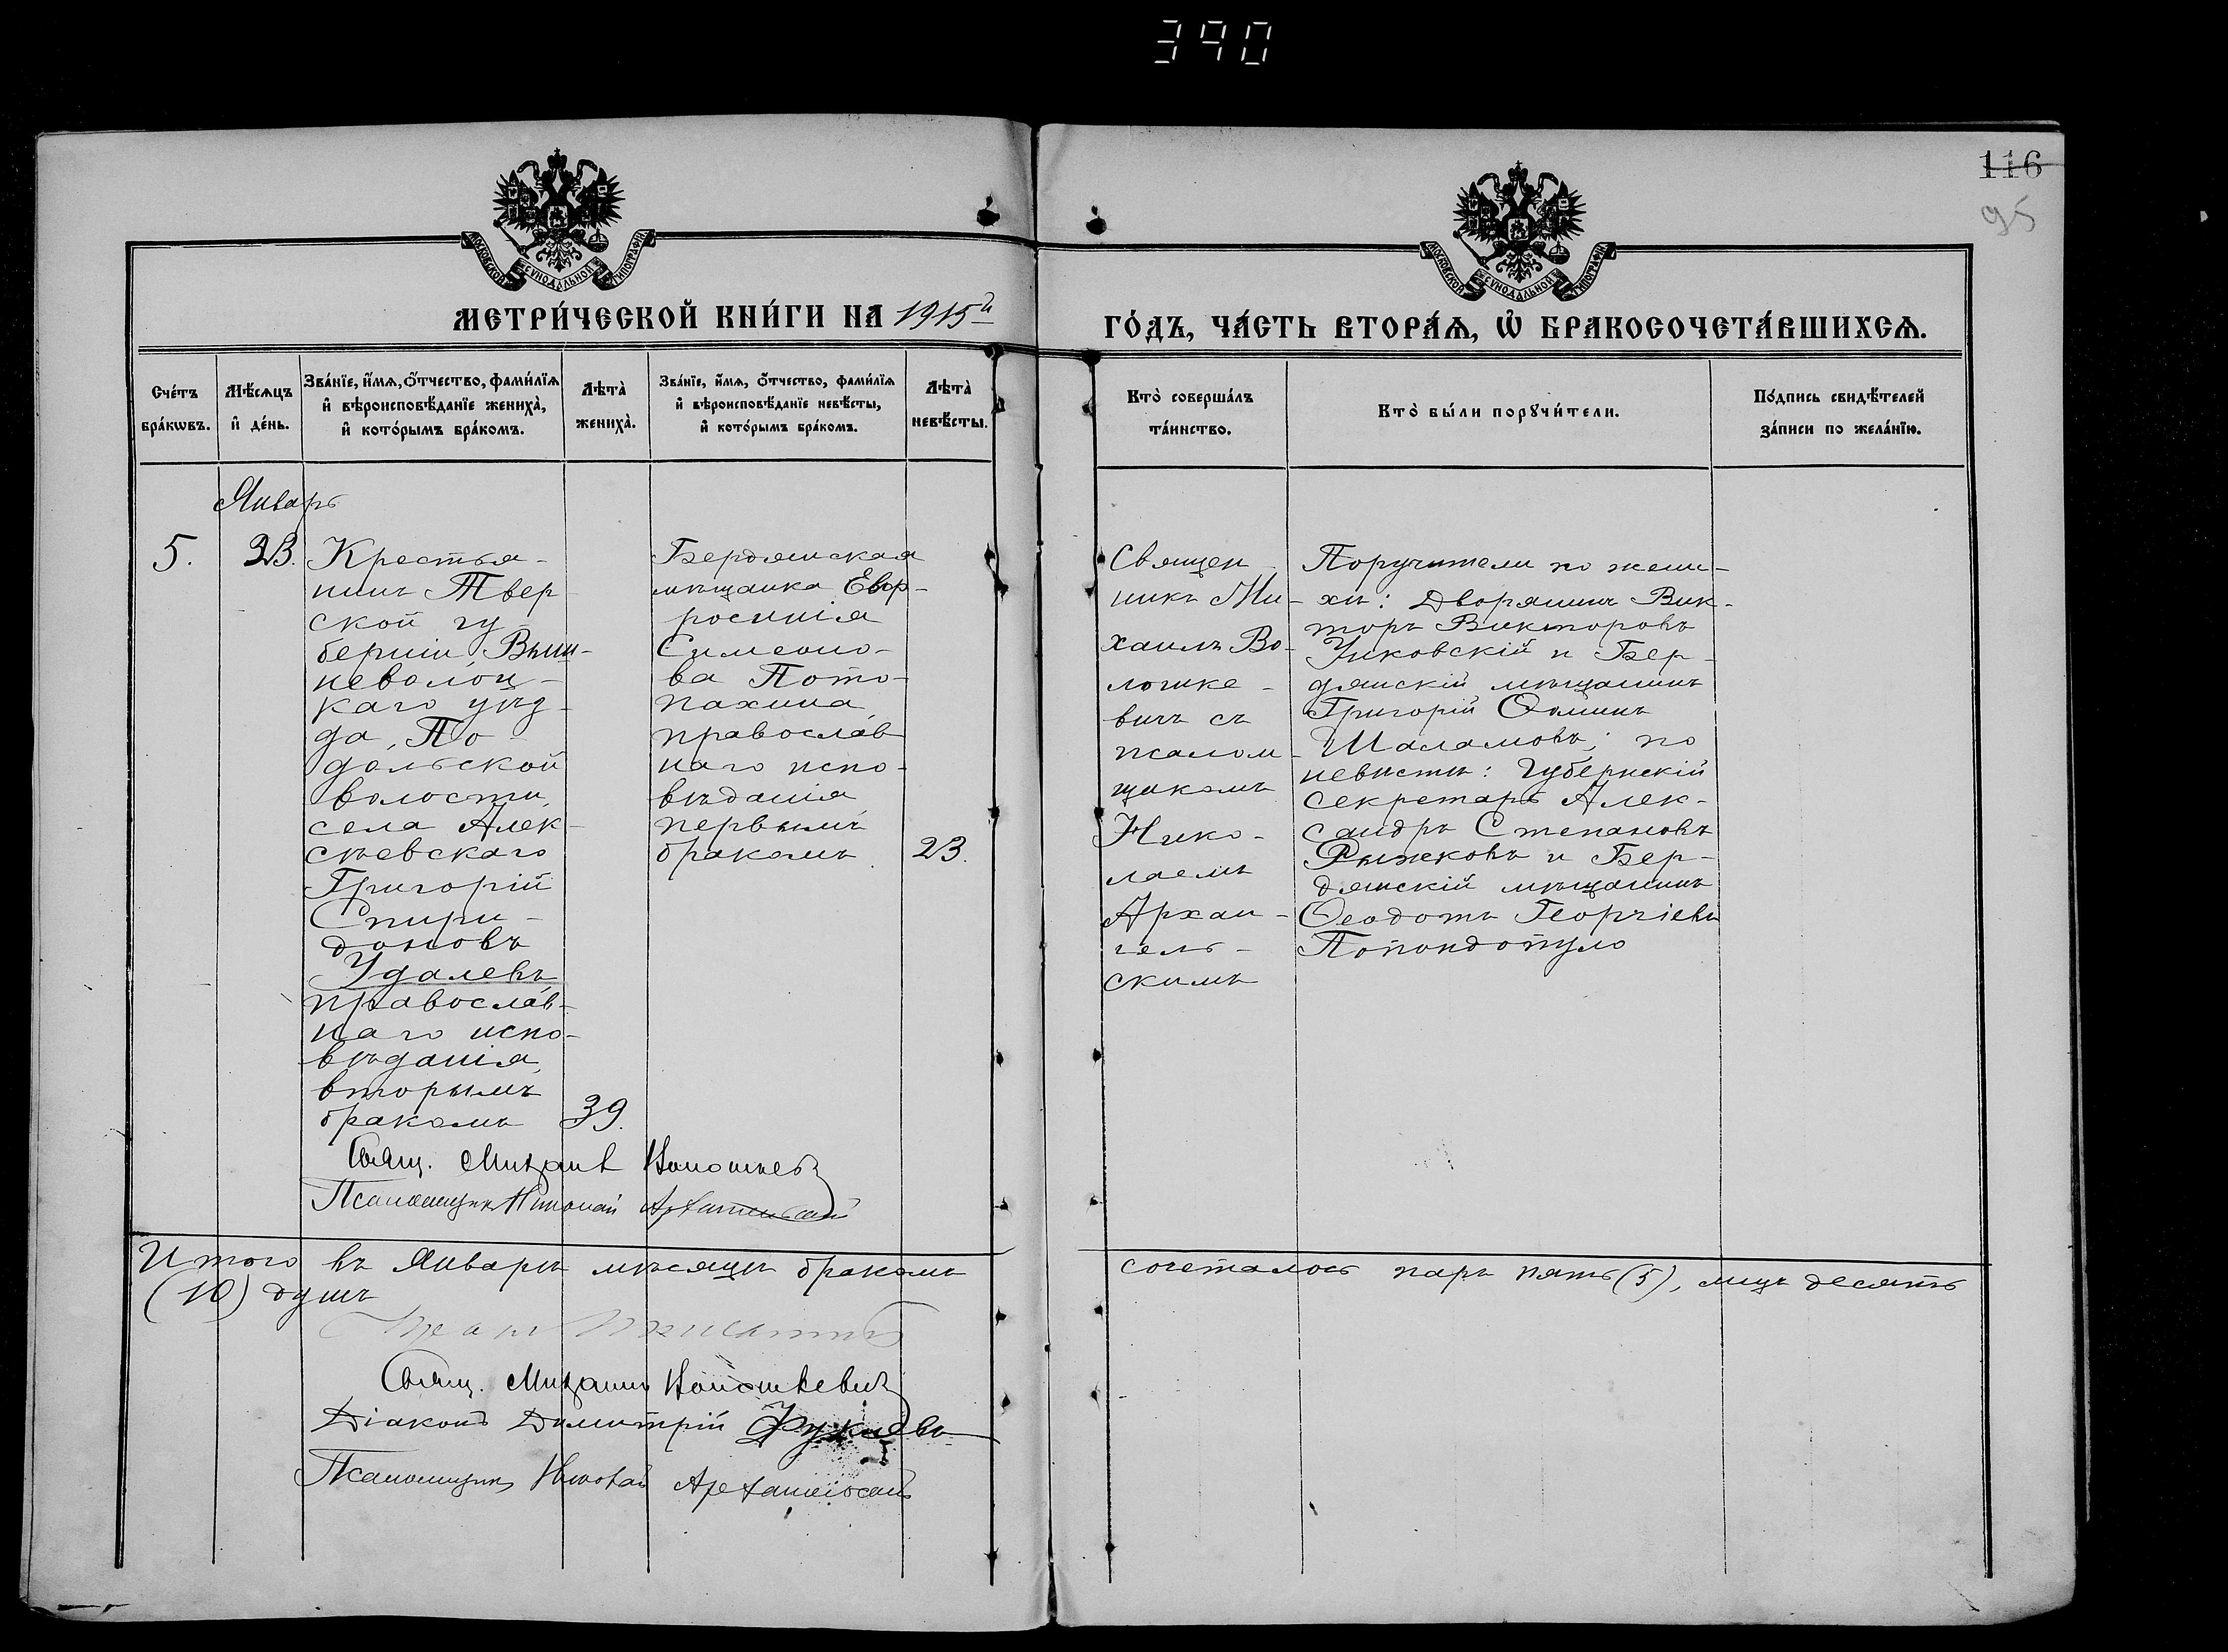 390
116
95
МОСКОВСКОЙ СѴНОДАЛЬНОЙ ТИПОГРАФІИ
МОСКОВСКОЙ СѴНОДАЛЬНОЙ ТИПОГРАФІИ
МЕТРИ́ЧЕСКОЙ КНИ́ГИ НА 1915й
ГО́ДЪ, ЧА́СТЬ ВТОРА́Ѧ, Ѽ БРАКОСОЧЕТА́ВШИХСѦ.
Сче́тъ
бра́кѡвъ.
Мѣ́сѧцъ
и҆ де́нь.
Зва́нїе, и҆́мѧ, ѻ҆́тчество, фами́лїѧ
и҆ вѣроисповѣ́данїе жениха̀,
и҆ кото́рымъ бра́комъ.
Лѣта̀
жениха̀.
Зва́нїе, и҆́мѧ, ѻ҆́тчество, фами́лїѧ
и҆ вѣроисповѣ́данїе невѣ́сты,
и҆ кото́рымъ бра́комъ.
Лѣта̀
невѣ́сты.
Кто̀ соверша́лъ
та́инство.
Кто̀ бы́ли порꙋчи́тели.
По́дпись свидѣ́телей
за́писи по жела́нїю.
Январь
5.
23.
Крестья-
нинъ Твер
ской гу-
берніи, Выш-
неволоц-
каго уѣз-
да, По-
дольской
волости,
села Алек-
сѣевскаго
Григорій
Спири-
доновъ
Удалевъ,
православ-
наго испо-
вѣданія,
вторымъ
бракомъ
39.
Бердянская
мѣщанка Евф-
росинія
Симеоно-
ва Пото-
пахина,
православ
наго испо-
вѣданія
первымъ
бракомъ
23.
Священ
никъ Ми-
хаилъ Во-
лошке-
вичъ съ
псалом-
щикомъ
Нико-
лаемъ
Архан-
гель-
скимъ
Поручители по жени-
хѣ: Дворянинъ Вик-
торъ Викторовъ
Уиковскій и Бер-
дянскій мѣщанинъ
Григорій Ѳоминъ
Шаламовъ; по
невѣстѣ: Губернскій
секретарь Алек-
сандръ Степановъ
Рыжковъ и Бер-
дянскій мѣщанинъ
Ѳеодотъ Георгіевъ
Попондопуло
Свящ. Михаилъ Волошкевичъ
Псаломщикъ Николай Архангельскій
Итого въ Январѣ мѣсяцѣ бракомъ
сочеталось паръ пять (5), лицъ десять
(10) душъ
Свящ. Михаилъ Волошкевичъ
Діаконъ Димитрій
Псаломщикъ Николай Архангельскій